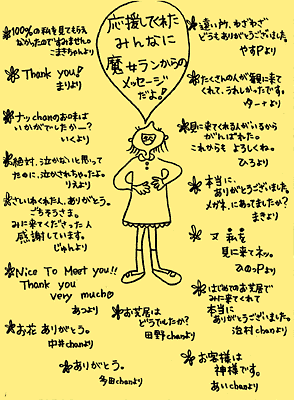 応援してくれた
みんなに
魔女ランからの
メッセージ
だよ!
100%の私を見てもらえ
なかったのですみません。
こまきちゃんより
Thank you!
まりより
ナッchanのお味は
いかがでしたかー?
いくより
絶対、泣かないと思って
たのに、泣かされちゃったよ。
りえより
さしいれくれた人、ありがとう。
ごちそうさま。
みに来てくださった人
感謝しています。
じゅんより
Nice To Meet you!!
Thank you
very much
あつより
お花 ありがとう。
中井chanより
ありがとう。
多田chanより
お芝居は
どうでしたか?
田野chanより
遠い所、わざわざ
どうもありがとうございました。
やすPより
たくさんの人が観に来て
くれて、うれしかったです。
ターナより
見に来てくれる人がいるから
がんばれた。
これからも よろしくね。
ひろより
本当に、
ありがとうございました。
メガネ、にあってましたか?
まきより
又 私を
見に来てネッ。
ひのPより
はじめてのお芝居で
みに来てくれて
本当に
ありがとうございました。
治村chanより
お客様は
神様です。
あいchanより